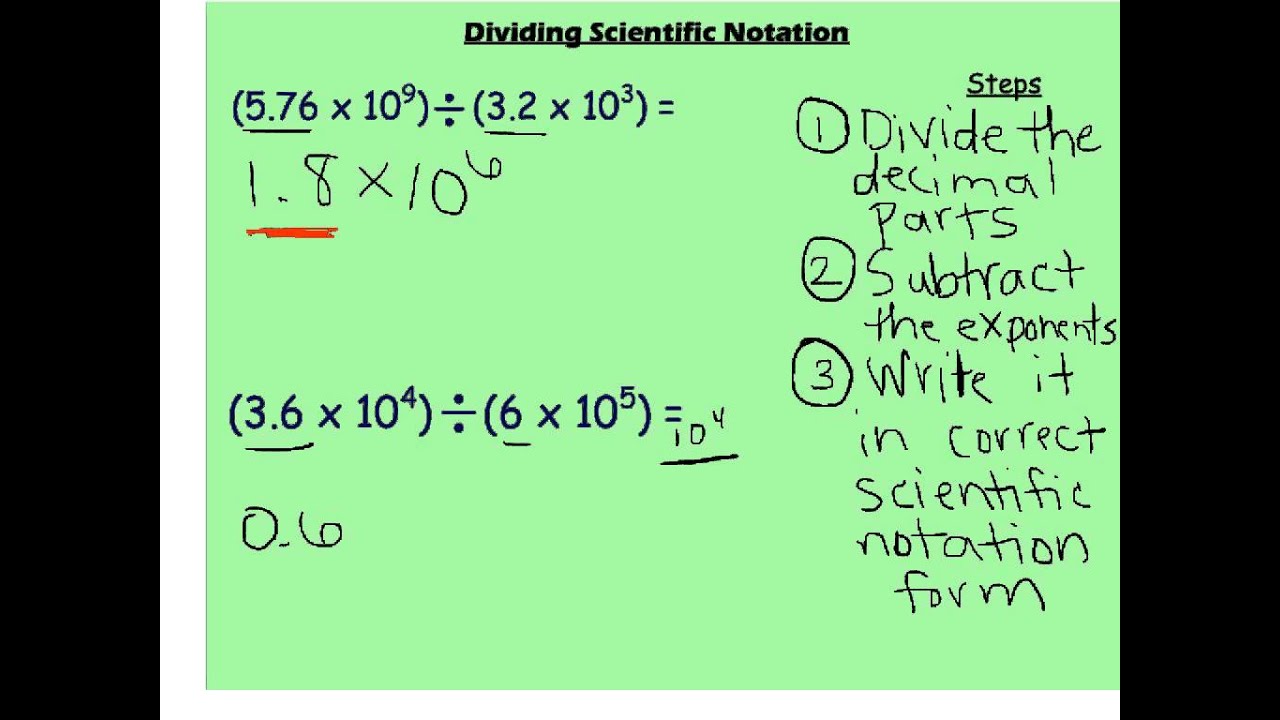 Dividing Scientific Notation
(5.76 x 10⁹) ÷ (3.2 x 10³) =
1.8 × 10⁶
(3.6 x 10⁴) ÷ (6 x 10⁵) =
10⁴
0.6
Steps
① Divide the
decimal
Parts
② Subtract
the exponents
③ Write it
in correct
scientific
notation
form